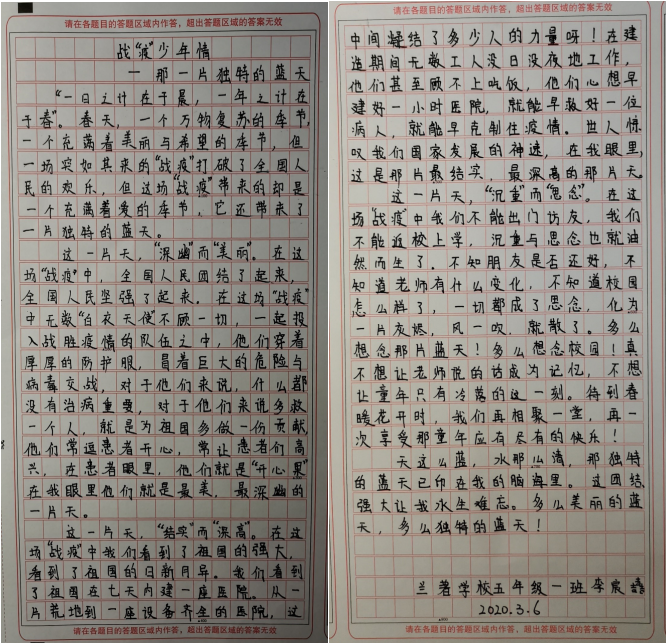 请在各题目的答题区域内作答，超出答题区域的答案无效
战“疫”少年情
—那一片独特的蓝天
“一日之计在于晨，一年之计在
于春”。春天，一个万物复苏的季节，
一个充满着美丽与希望的季节，但
一场突如其来的“战疫”打破了全国人
民的欢乐，但这场“战疫”带来的却是
一个充满着爱的季节，它还带来了
一片独特的蓝天。
这一片天，“深幽”而“美丽”。在这
场“战疫”中，全国人民团结了起来，
全国人民坚强了起来。在这场“战疫”
中无数“白衣天使不顾一切，一起投
入战胜疫情的队伍之中，他们穿着
厚厚的防护服，冒着巨大的危险与
病毒交战，对于他们来说，什么都
没有治病重要，对于他们来说多救
一个人，就是为祖国多做一份贡献
他们常逗患者开心，常让患者们高
兴，在患者眼里，他们就是“开心果”
在我眼里他们就是最美，最深幽的
一片天。
这一片天，“结实”而“深高”。在这
场“战疫”中我们看到了祖国的强大，
看到了祖国的日新月异。我们看到
了祖国在七天内建一座医院。从一
片荒地到一座设备齐全的医院，这
请在各题目的答题区域内作答，超出答题区域的答案无效
请在各题目的答题区域内作答，超出答题区域的答案无效
中间凝结了多少人的力量呀！在建
造期间无数工人没日没夜地工作，
他们甚至顾不上吃饭，他们心想早
建好一小时医院，就能早救好一位
病人，就能早克制住疫情。世人惊
叹我们国家发展的神速，在我眼里，
这是那片最结实，最深高的那片天。
这一片天，“沉重”而“思念”。在这
场“战疫”中我们不能出门访友，我们
不能返校上学，沉重与思念也就油
然而生了。不知朋友是否还好，不
知道老师有什么变化，不知道校园
怎么样了，一切都成了思念，化为
一片灰烬，风一吹，就散了。多么
想念那片蓝天！多么想念校园！真
不想让老师说的话成为记忆，不想
让童年只有冷落的这一刻。待到春
暖花开时，我们再相聚一堂，再一
次享受那童年应有尽有的快乐！
天这么蓝，水那么清，那独特
的蓝天已印在我的脑海里。这团结
强大让我永生难忘。多么美丽的蓝
天，多么独特的蓝天！
兰著学校五年级一班李宸
2020.3.6
请在各题目的答题区域内作答，超出答题区域的答案无效